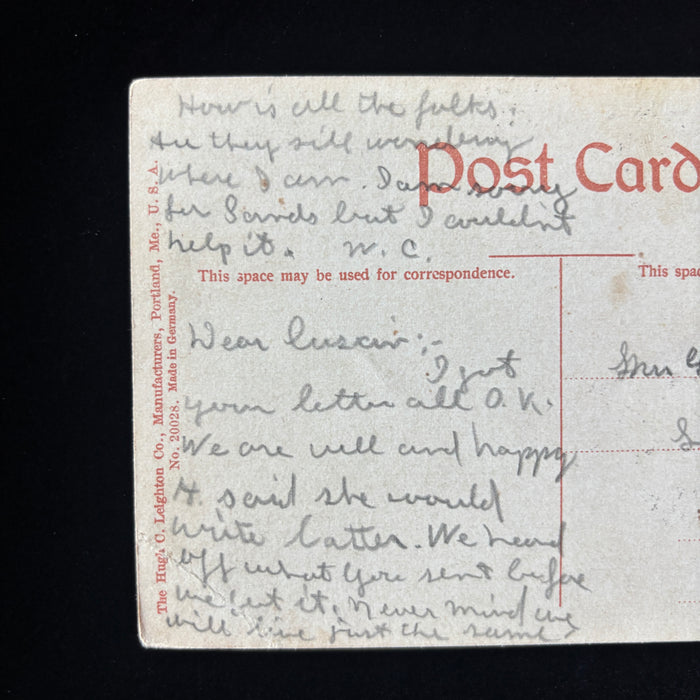 How is all the folks.
Are they sill wondering
where I am. I am sorry
for Sands but I couldn't
help it. W. C.
Post Card
This space may be used for correspondence.
This spa
The Hugh C. Leighton Co., Manufacturers, Portland, Me., U. S. A.
No. 20028. Made in Germany.
Dear Cusein:-
I got
your letter all O. K.
We are well and happy
A. said she would
write latter. We heard
off what you sent before
we get it. Never mind we
will live just the same
Mrs G
S